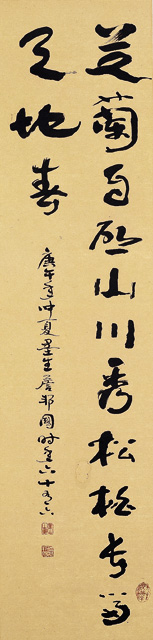 芝蘭山川秀松柏長留
天地春
庚午年仲夏墨生詹邦國時年六十有六